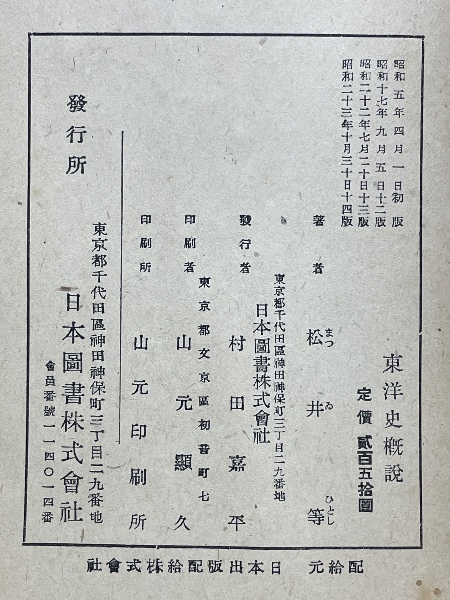 昭和五年四月一日初版
昭和十七年九月五日十二版
昭和二十二年七月二十日十三版
昭和二十三年十月三十日十四版
東洋史概說
定價貳百五拾圓
著者 松井等
まつ ゐ ひとし
東京都千代田區神田神保町三丁目二九番地
日本圖書株式會社
發行者 村田嘉平
東京都文京區初音町七
印刷者 山元顯久
印刷所 山元印刷所
東京都千代田區神田神保町三丁目二九番地
發行所 日本圖書株式會社
會員番號一一四〇一四番
配給元 日本出版配給株式會社